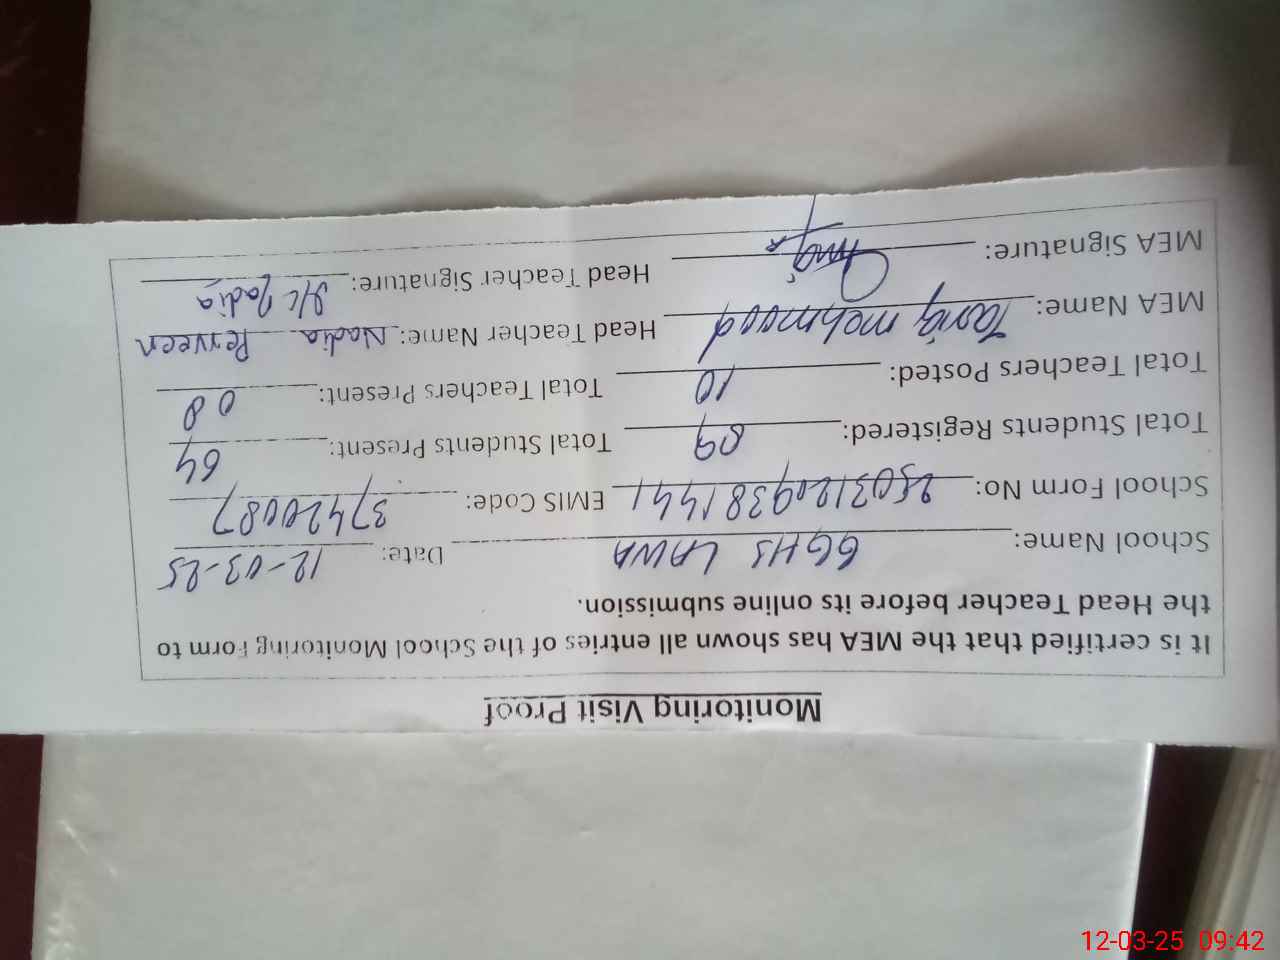 Monitoring Visit Proof
It is certified that the MEA has shown all entries of the School Monitoring Form to
the Head Teacher before its online submission.
School Name: GGHS LAWA Date: 12-03-25
School Form No: 25031209381441 EMIS Code: 37420087
Total Students Registered: 89 Total Students Present: 64
Total Teachers Posted: 10 Total Teachers Present: 08
MEA Name: Tariq mehmood Head Teacher Name: Nadia Perveen
MEA Signature: Head Teacher Signature: I/C Nadia
12-03-25 09:42